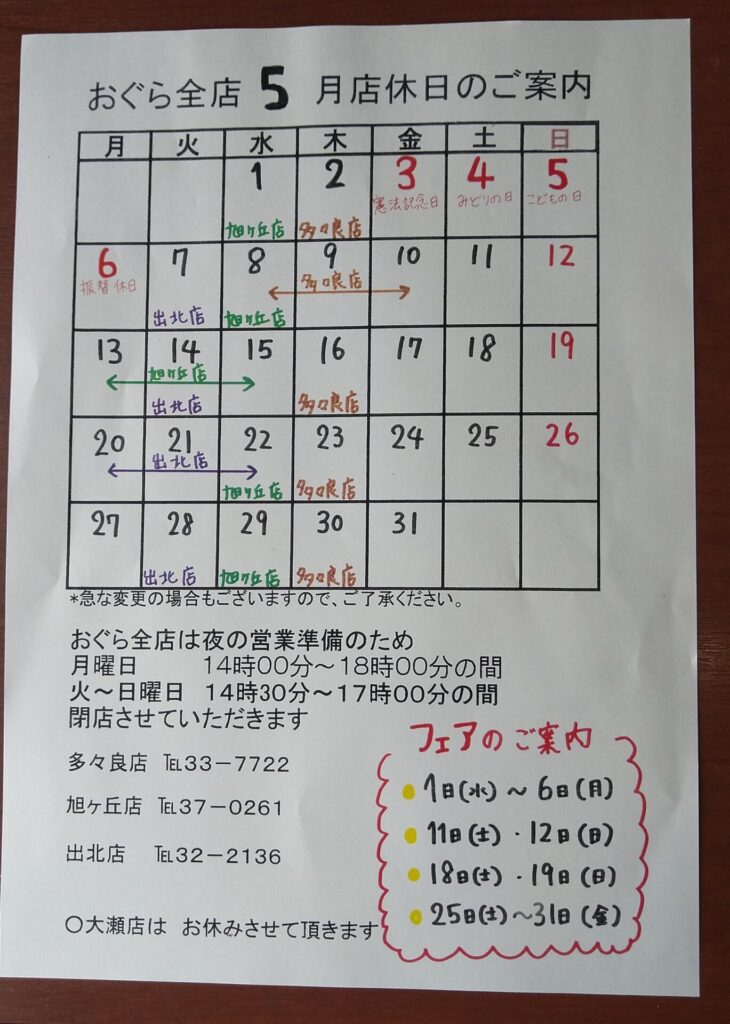 おぐら全店 5 月店休日のご案内
月 火 水 木 金 土 日
1 2 3 4 5
憲法記念日 みどりの日 こどもの日
旭ヶ丘店 多々良店
6 7 8 9 10 11 12
振替休日 多々良店
出北店 旭ヶ丘店
13 14 15 16 17 18 19
旭ヶ丘店
出北店 多々良店
20 21 22 23 24 25 26
出北店
旭ヶ丘店 多々良店
27 28 29 30 31
出北店 旭ヶ丘店 多々良店
*急な変更の場合もございますので、ご了承ください。
おぐら全店は夜の営業準備のため
月曜日 14時00分~18時00分の間
火~日曜日 14時30分~17時00分の間
閉店させていただきます
多々良店 ℡33-7722
旭ヶ丘店 ℡37-0261
出北店 ℡32-2136
〇大瀬店は お休みさせて頂きます
フェアのご案内
1日(水)~6日(月)
11日(土)・12日(日)
18日(土)・19日(日)
25日(土)~31日(金)